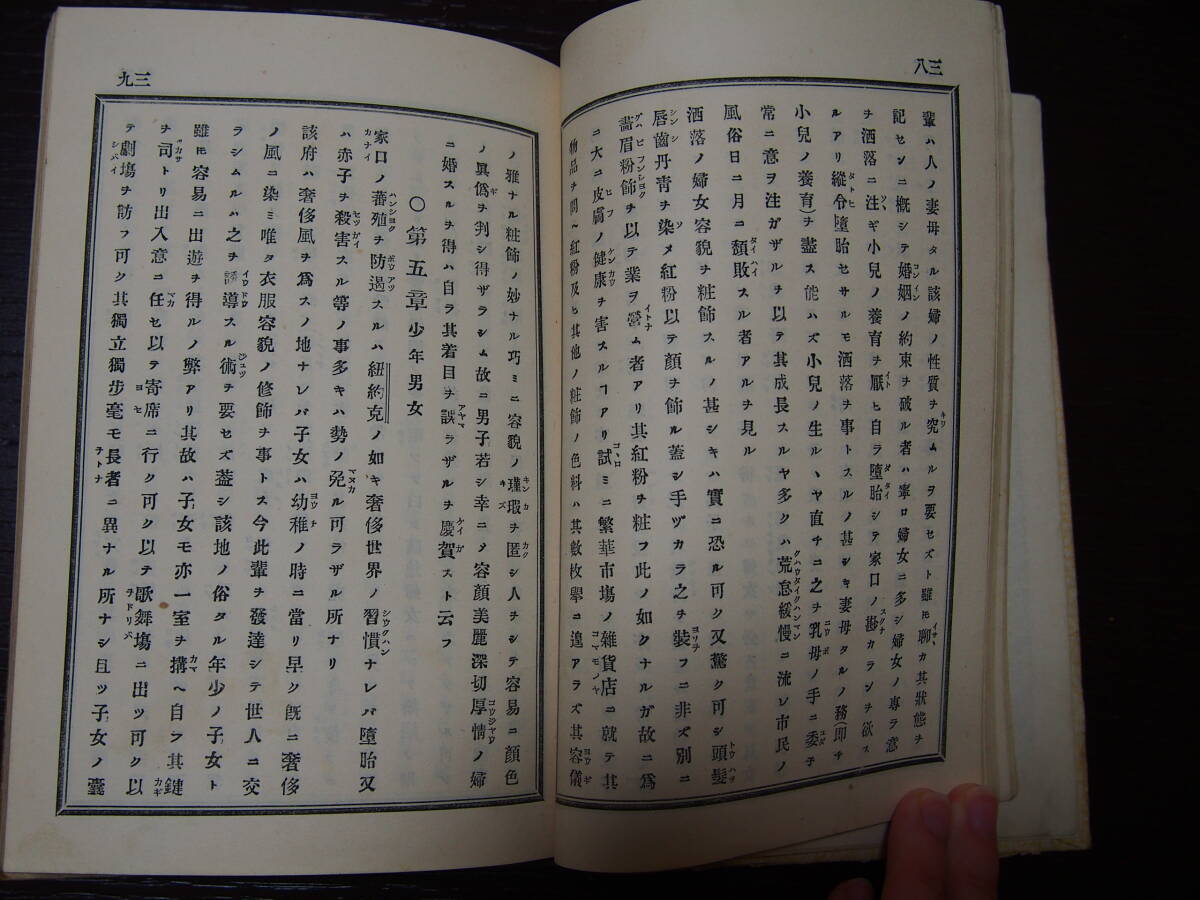 三八
輩ハ人ノ妻母タル該婦ノ性質ヲ究ムルヲ要セズト雖𪜈聊カ其狀態ヲ
記センニ概シテ婚姻ノ約束ヲ破ル者ハ寧ロ婦女ニ多シ婦女ノ專ラ意
ヲ洒落ニ注ギ小兒ノ養育ヲ厭ヒ自ラ墮胎シテ家口ノ尠カランヿヲ欲ス
ルアリ縱令墮胎セサルモ洒落ヲ事トスルノ甚シキ妻母タルノ務(即チ
小兒ノ養育)ヲ盡ス能ハズ小兒ノ生ルヽヤ直チニ之ヲ乳母ノ手ニ委子
常ニ意ヲ注ガザルヲ以テ其成長スルヤ多クハ荒怠緩慢ニ流レ市民ノ
風俗日ニ月ニ頽敗スル者アルヲ見ル
洒落ノ婦女容貌ヲ粧飾スルノ甚シキハ實ニ恐ル可ク又驚ク可シ頭髮
唇齒丹靑ヲ染メ紅粉以テ顏ヲ飾ル蓋シ手ヅカラ之ヲ裝フニ非ズ別ニ
畵眉粉飾ヲ以テ業ヲ營ム者アリ其紅粉ヲ粧フ此ノ如クナルガ故ニ爲
ニ大ニ皮膚ノ健康ヲ害スルヿアリ試ミニ繁華市塲ノ雜貨店ニ就テ其
物品ヲ問ヘ紅粉及ヒ其他ノ粧飾ノ色料ハ其數枚擧ニ遑アラズ其容儀
三九
ノ雅ナル粧飾ノ妙ナル巧ミニ容貌ノ瑾瑕ヲ匿シ人ヲシテ容易ニ顏色
ノ眞僞ヲ判シ得ザラシム故ニ男子若シ幸ニシテ容顏美麗深切厚情ノ婦
ニ婚スルヲ得ハ自ラ其着目ヲ誤ラザルヲ慶賀スト云フ
○第五章 少年男女
家口ノ蕃殖ヲ防遏スルハ紐約克ノ如キ奢侈世界ノ習慣ナレバ墮胎又
ハ赤子ヲ殺害スル等ノ事多キハ勢ノ免ル可ラザル所ナリ
該府ハ奢侈風ヲ爲スノ地ナレバ子女ハ幼稚ノ時ニ當リ早ク旣ニ奢侈
ノ風ニ染ミ唯タ衣服容貌ノ修飾ヲ事トス今此輩ヲ發達シテ世人ニ交
ラシムルハ之ヲ誘導スル術ヲ要セズ蓋シ該地ノ俗タル年少ノ子女ト
雖𪜈容易ニ出遊ヲ得ルノ弊アリ其故ハ子女モ亦一室ヲ搆ヘ自ラ其鏈
ヲ司トリ出入意ニ任セ以テ寄席ニ行ク可ク以テ歌舞塲ニ出ツ可ク以
テ劇塲ヲ訪フ可ク其獨立獨步毫モ長者ニ異ナル所ナシ且ツ子女ノ囊